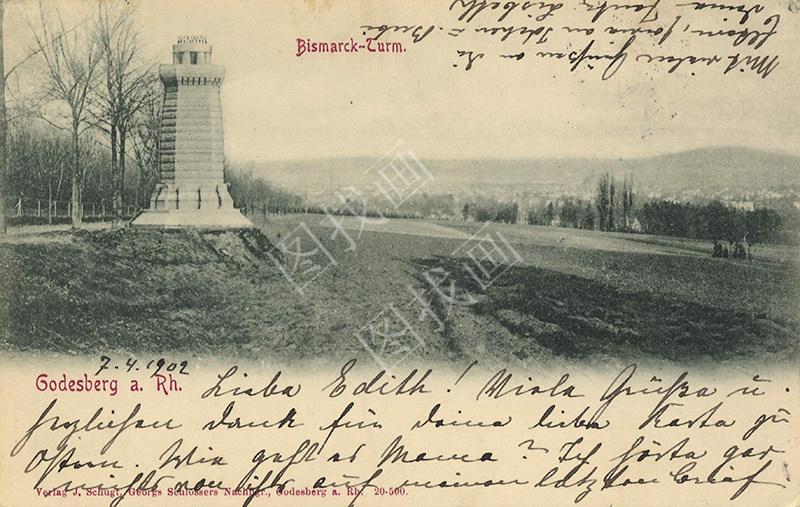 Bismarck-Turm.
Godesberg a. Rh.
7.4.1902
Liebe Edith! Viele Grüße u.
herzlichen Dank für deine liebe Karte zu
Ostern. Wie geht es Mama? Ich hörte gar
nichts von ihr auf meinen letzten Brief.
Mit vielen Grüßen an die
Lisbeth
Verlag J. Schugt, Georgs Schlossers Nachfgr., Godesberg a. Rh. 20-500.
找图画
找图画